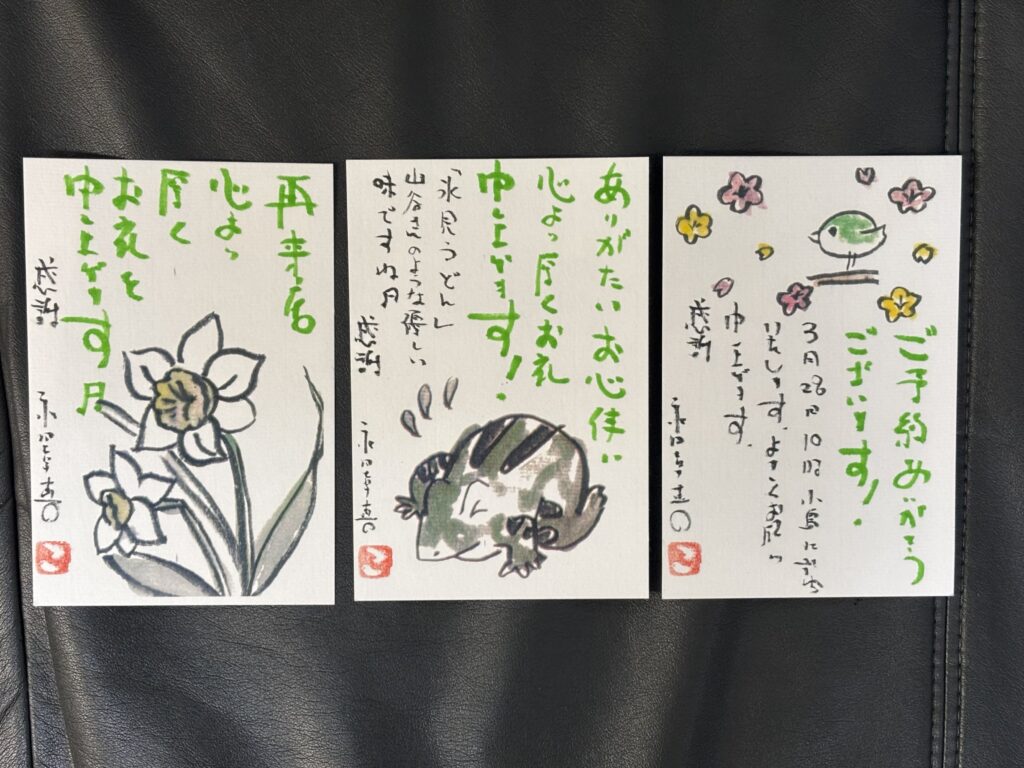 ご予約ありがとう
ございます!
3月28日10時小島に
いたします。よろしくお願い
申し上げます。
感謝
ありがたいお心使い
心より厚くお礼
申し上げます!
「氷見うどん」
山谷さんのような優しい
味ですね
感謝
再来店
心より
厚く
お礼を
申し上げます
感謝